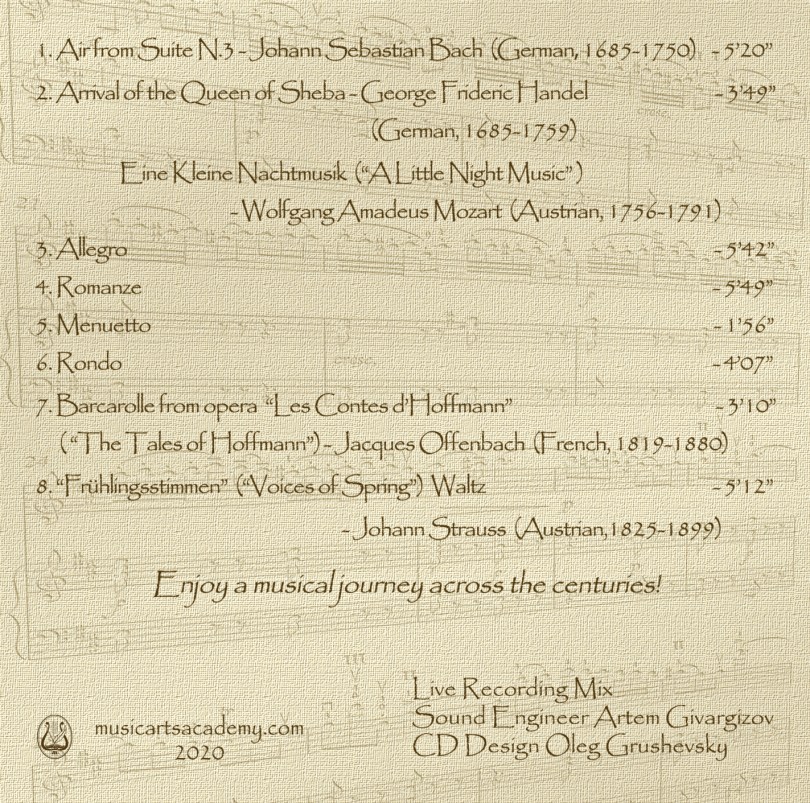 1. Air from Suite N.3 - Johann Sebastian Bach (German, 1685-1750) - 5'20"
2. Arrival of the Queen of Sheba - George Frideric Handel - 3'49"
(German, 1685-1759)
Eine Kleine Nachtmusik ("A Little Night Music")
- Wolfgang Amadeus Mozart (Austrian, 1756-1791)
3. Allegro - 5'42"
4. Romanze - 5'49"
5. Menuetto - 1'56"
6. Rondo - 4'07"
cresc.
7. Barcarolle from opera "Les Contes d'Hoffmann" - 3'10"
("The Tales of Hoffmann") - Jacques Offenbach (French, 1819-1880)
8. "Frühlingsstimmen" ("Voices of Spring") Waltz - 5'12"
- Johann Strauss (Austrian, 1825-1899)
Enjoy a musical journey across the centuries!
Live Recording Mix
Sound Engineer Artem Givargizov
CD Design Oleg Grushevsky
musicartsacademy.com
2020